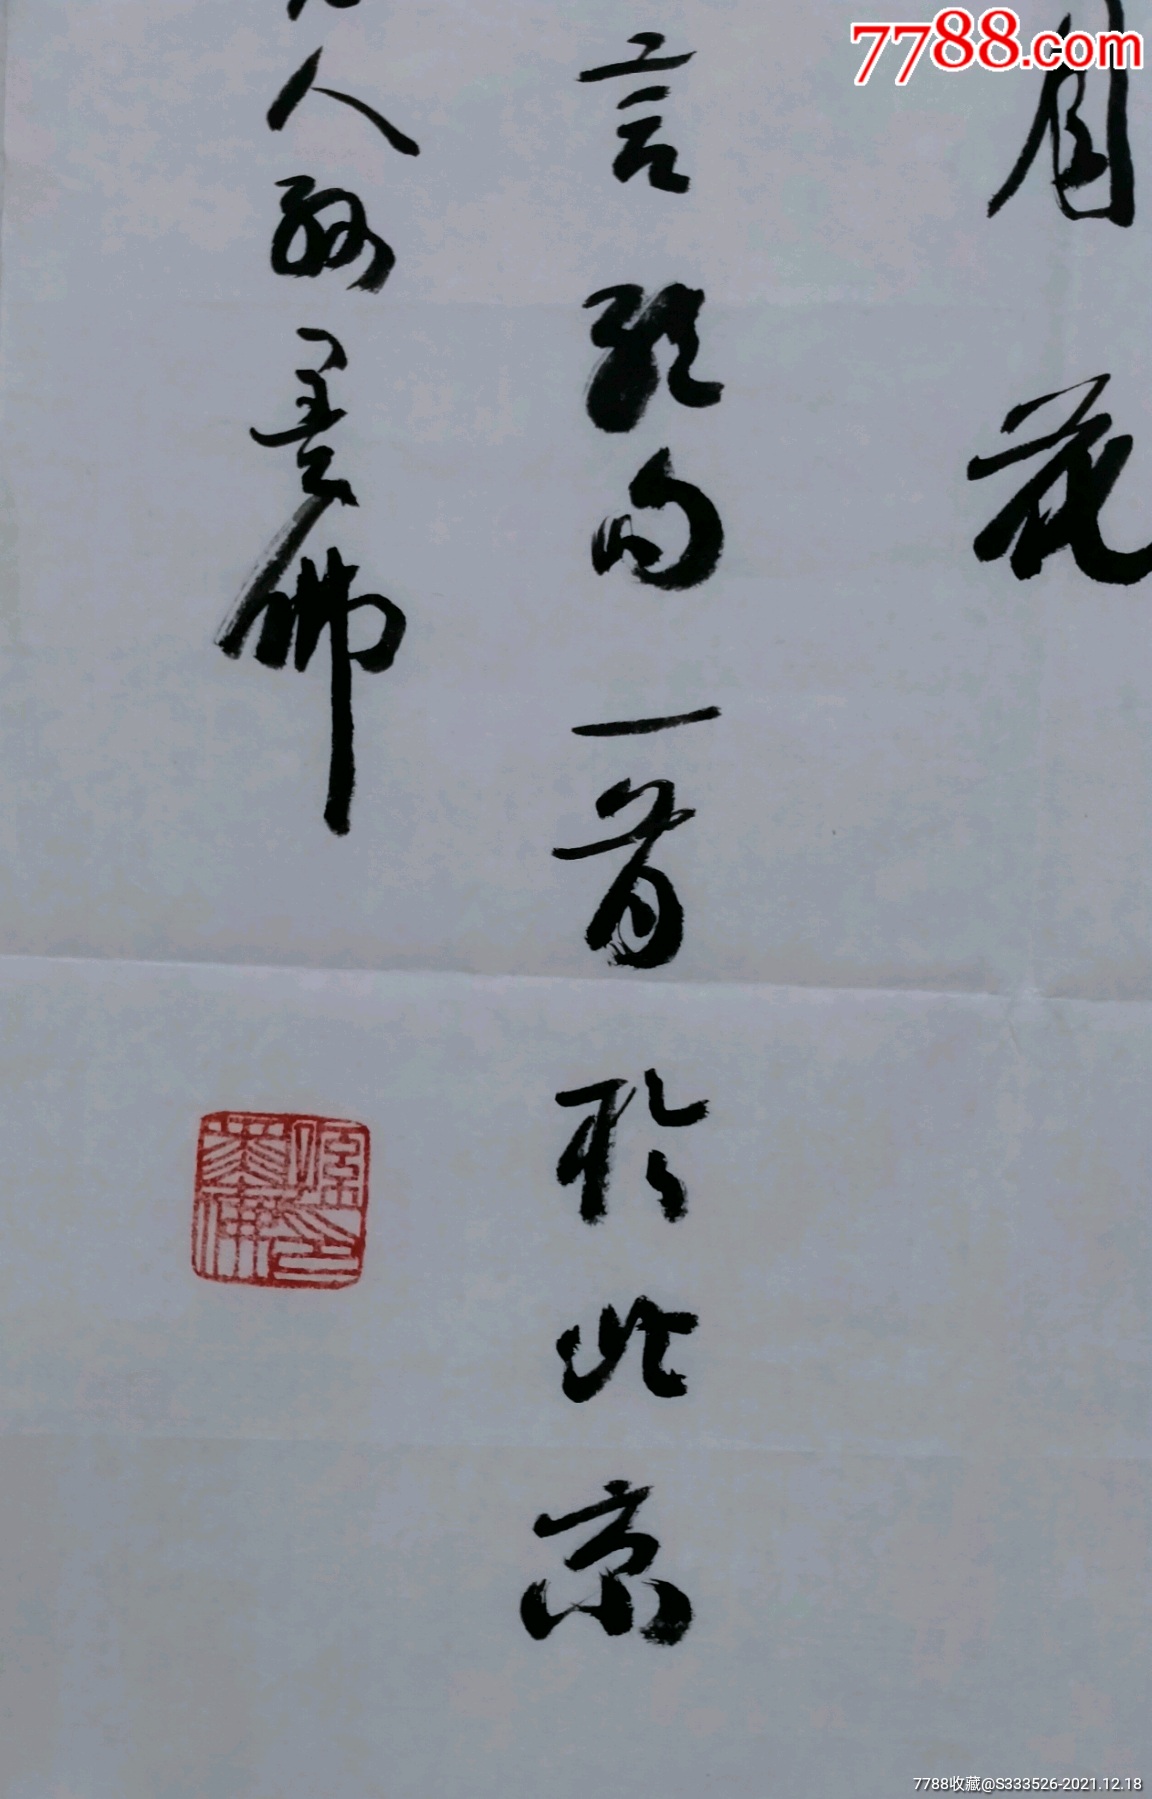 7788.com
花
言绝句一首於北京
人孙墨佛
7788收藏@S333526-2021.12.18